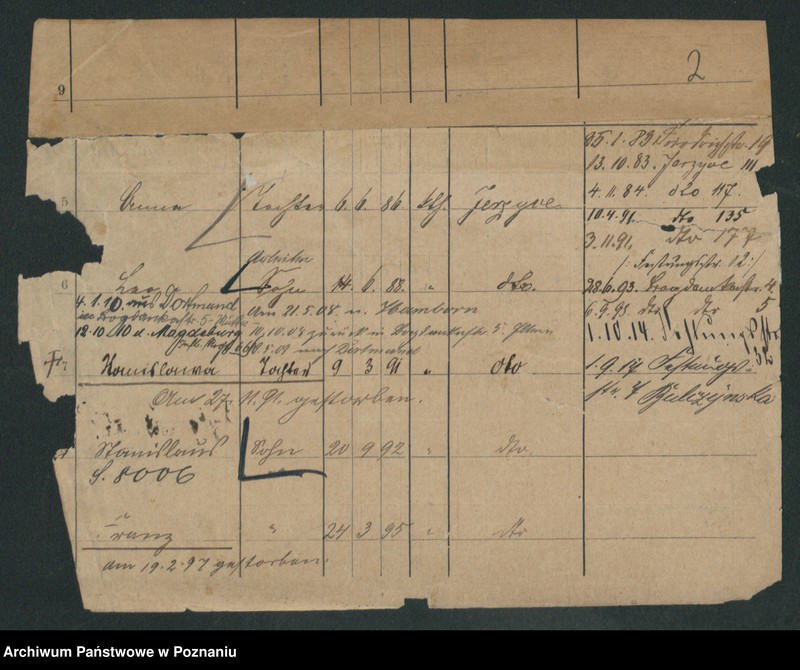 2
9
25.1.83 19
13.10.83 Jerzyce 111
4.11.84. dto 117.
5 Anna Tochter 6. 6. 86 kth. Jerzyce
10.4.91. dto 135
3.11.91. dto 177
/: Festungsstr. 12:/
6 Leo Sohn 14. 6. 88. " dto.
28.6.93. Bogdankastr. 4
4.1.10. aus Dortmund
Am 21.5.08. n. Hamborn
6.5.95. dto dto 5
in Bogdankastr. 5
12.10.10 n. Magdeburg
10.10.08 zurück in Bogdankastr. 5. Eltern
1.10.14. Festungsstr.
nach Dortmund
7 Stanislawa Tochter 9 3 91 " dto
1.9.17 Festungs-
str. 7
Am 27. 11. 91. gestorben.
Stanislaus Sohn 20 9 92 " dto.
S. 8006
Franz " 24 3 95 " dto
am 19.2.97 gestorben.
Archiwum Państwowe w Poznaniu